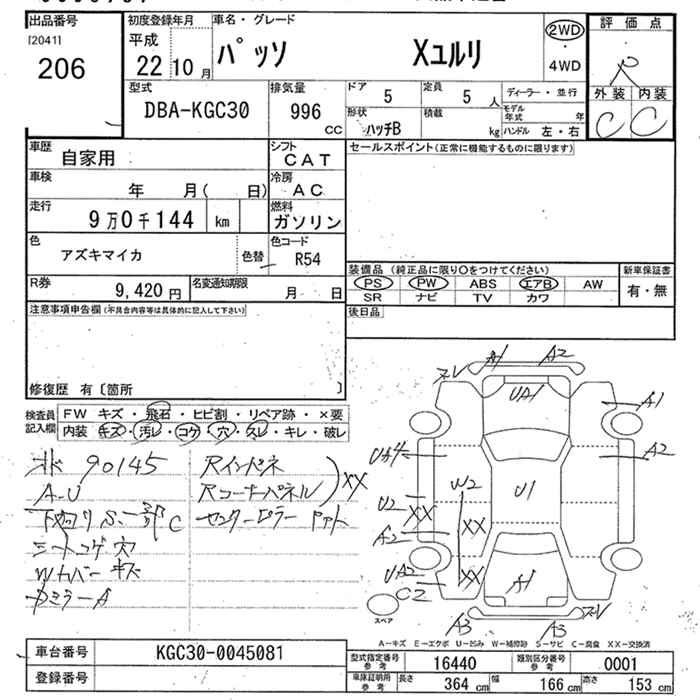 出品番号
[2041]
206
初度登録年月
平成
22 10 月
車名・グレード
パッソ Xユルリ
2WD
・
4WD
評価点
R
外装 内装
C C
型式
DBA-KGC30
排気量
996
cc
ドア
5
定員
5 人
形状
ハッチB
積載
kg
ディーラー・並行
モデル年式 年
ハンドル 左・右
車歴
自家用
シフト
CAT
車検
年 月( 日)
冷房
AC
走行
9万0千144 km
燃料
ガソリン
色
アズキマイカ
色替
色コード
R54
R券
9,420 円
名変通知期限
月 日
セールスポイント(正常に機能するものに限ります)
装備品(純正品に限り○をつけてください)
PS PW ABS エアB AW
SR ナビ TV カワ
新車保証書
有・無
後日品
注意事項申告欄(不具合内容等は具体的に記入して下さい)
修復歴 有〔箇所 〕
検査員
記入欄
FW キズ・飛石・ヒビ割・リペア跡・×要
内装 キズ・汚レ・コゲ・穴・スレ・キレ・破レ
90145
A-U
下廻りS.一部C
シートコゲ穴
Wカバーキズ
ミラーA
Rインパネ
Rコーナーパネル
XX
センターピラー
A1 A2
スレ
UA1
A1
A2
UA4
W2
U1
U2
XX
XX
A2
UA2
C2
XX
A1
スレ
A3
A3
スペア
A-キズ E-エクボ U-凹み W-補修跡 S-サビ C-腐食 XX-交換済
車台番号
KGC30-0045081
登録番号
型式指定番号
参考
16440
類別区分番号
参考
0001
車体証明書
参考
長さ
364 cm
幅
166 cm
高さ
153 cm